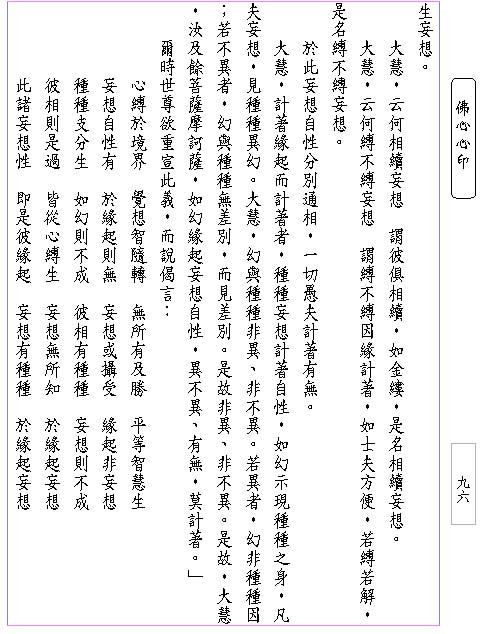 佛心心印
九六
生妄想。
大慧，云何相續妄想　謂彼俱相續，如金縷，是名相續妄想。
大慧，云何縛不縛妄想　謂縛不縛因緣計著，如士夫方便，若縛若解，
是名縛不縛妄想。
於此妄想自性分別通相，一切愚夫計著有無。
大慧，計著緣起而計著者，種種妄想計著自性，如幻示現種種之身，凡
夫妄想，見種種異幻。大慧，幻與種種非異、非不異。若異者，幻非種種因
；若不異者，幻與種種無差別，而見差別。是故非異、非不異。是故，大慧
，汝及餘菩薩摩訶薩，如幻緣起妄想自性，異不異、有無，莫計著。」
爾時世尊欲重宣此義，而說偈言：
心縛於境界　覺想智隨轉　無所有及勝　平等智慧生
妄想自性有　於緣起則無　妄想或攝受　緣起非妄想
種種支分生　如幻則不成　彼相有種種　妄想則不成
彼相則是過　皆從心縛生　妄想無所知　於緣起妄想
此諸妄想性　即是彼緣起　妄想有種種　於緣起妄想